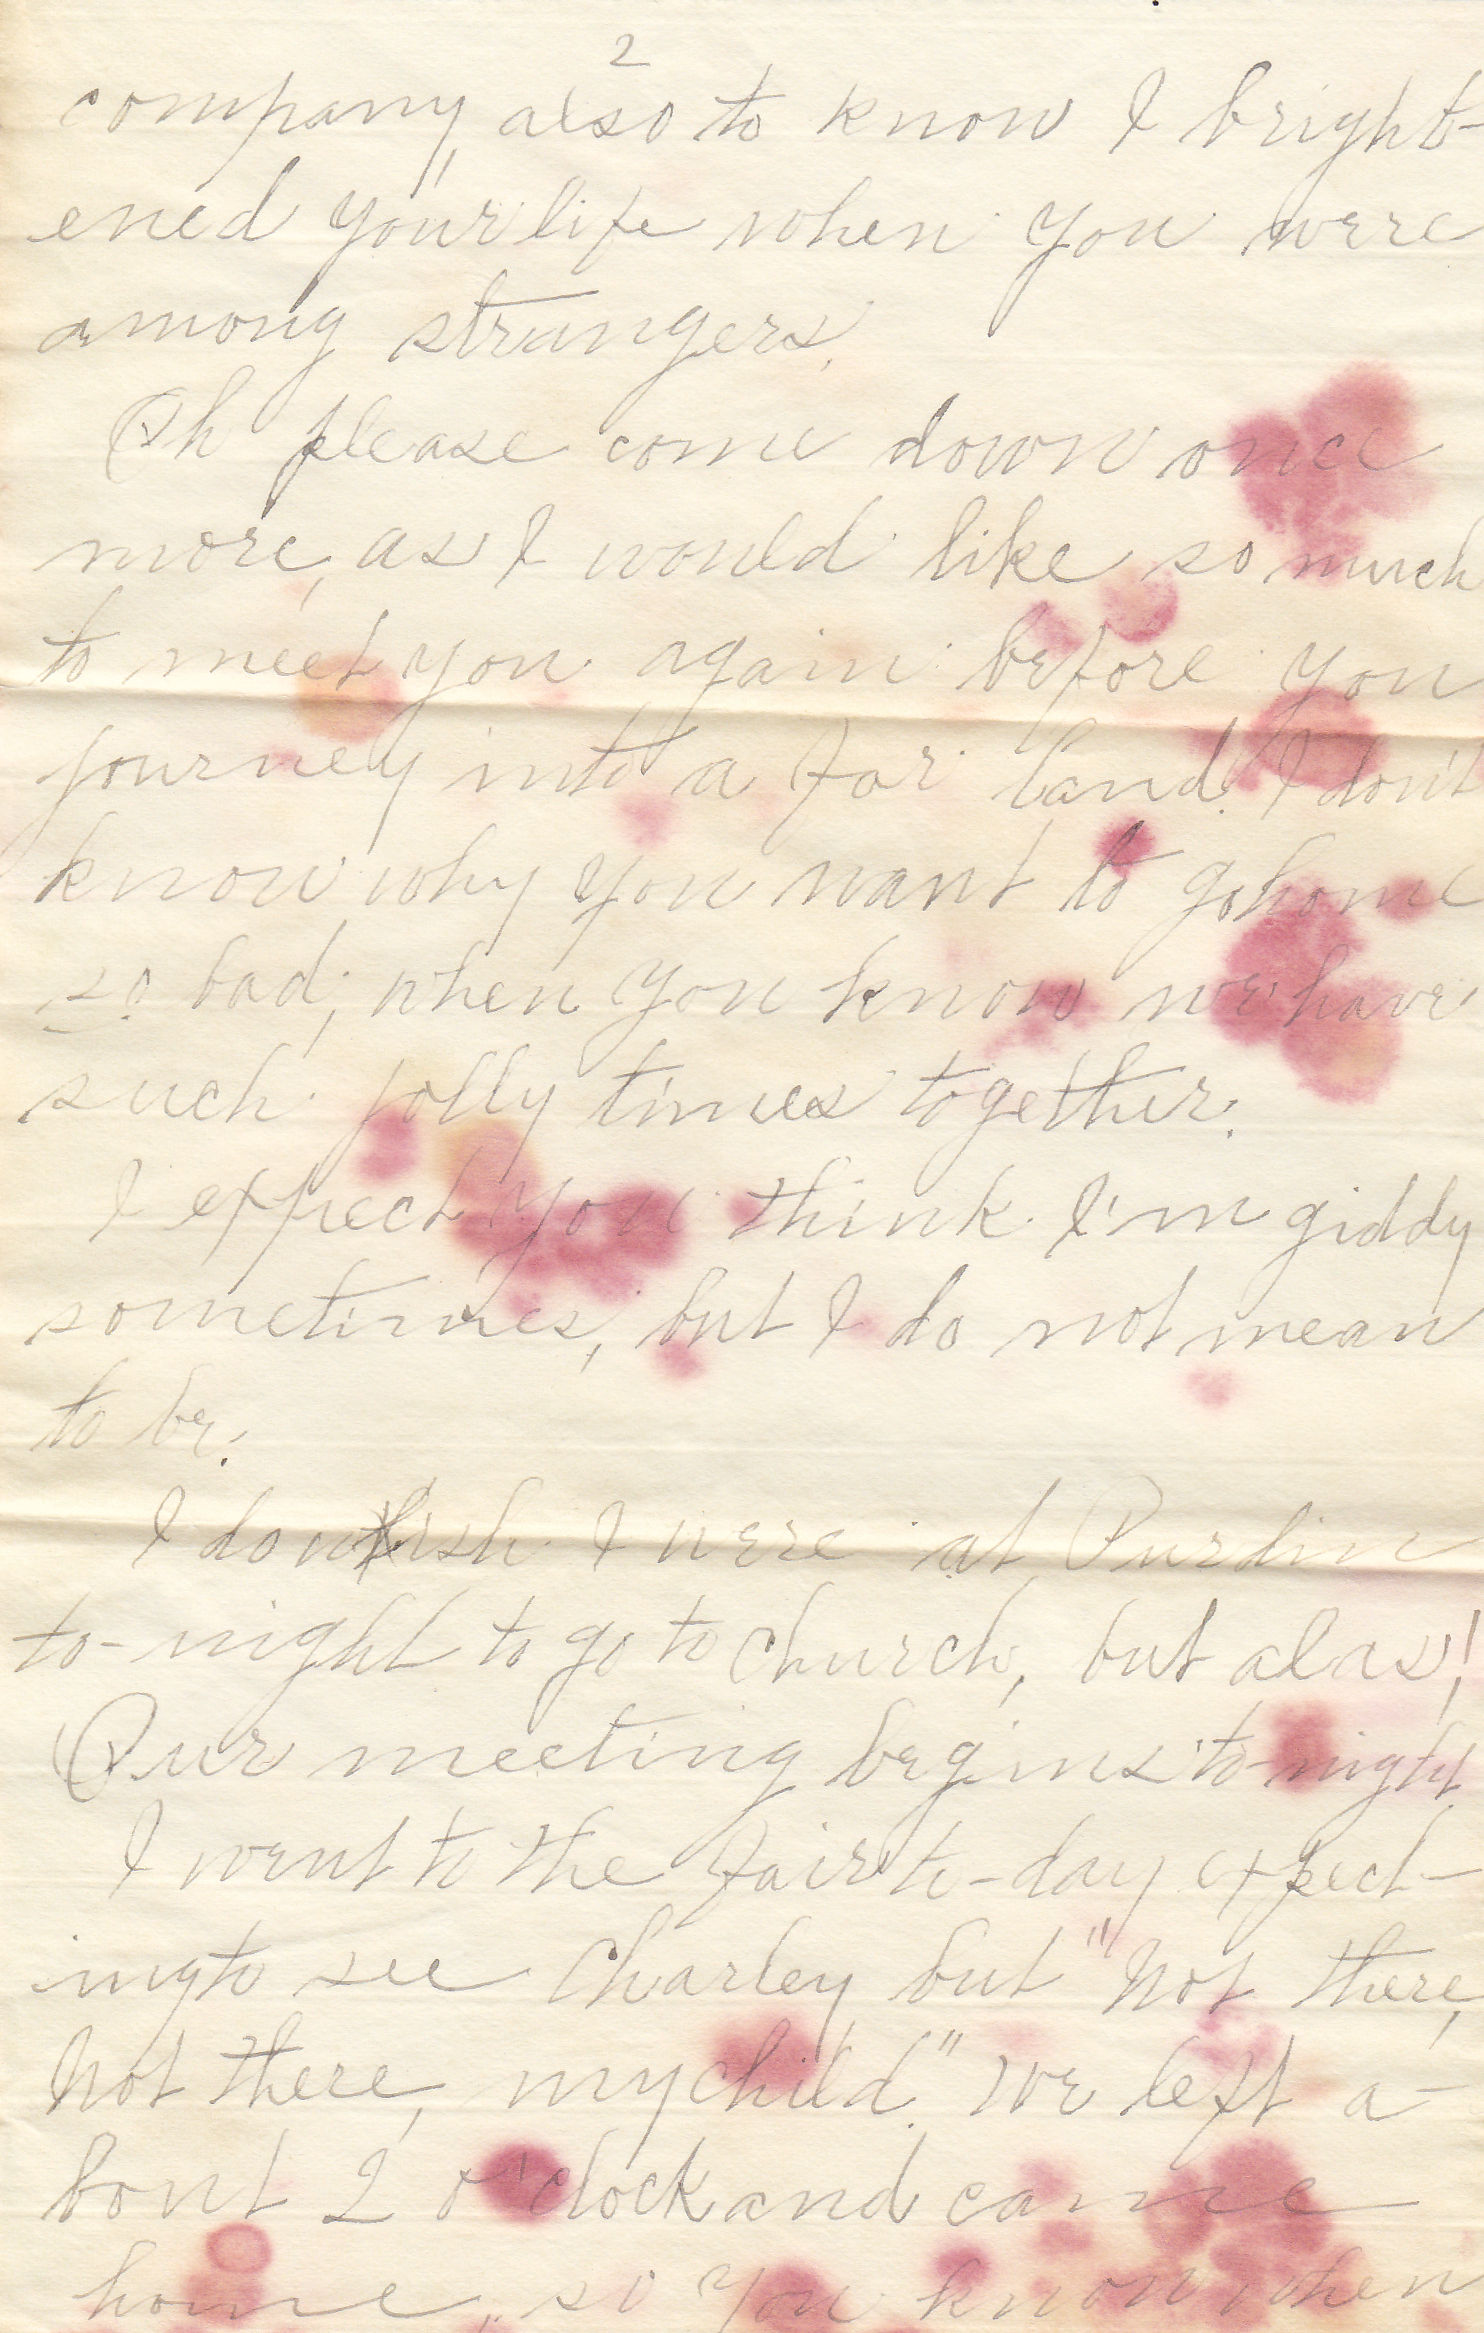 2
company, also to know I bright-
ened your life when you were
among strangers.
Oh please come down once
more, as I would like so much
to meet you again before you
journey into a far land. I don't
know why you want to go home
so bad; when you know we have
such jolly times together.
I expect you think I'm giddy
sometimes, but I do not mean
to be.
I do wish I were at Purdin
to-night to go to church, but alas!
Our meeting begins to-night
I went to the fair to-day expect-
ing to see Charley but "Not there,
Not there, my child." We left a-
bout 2 o'clock and came
home, so you know when